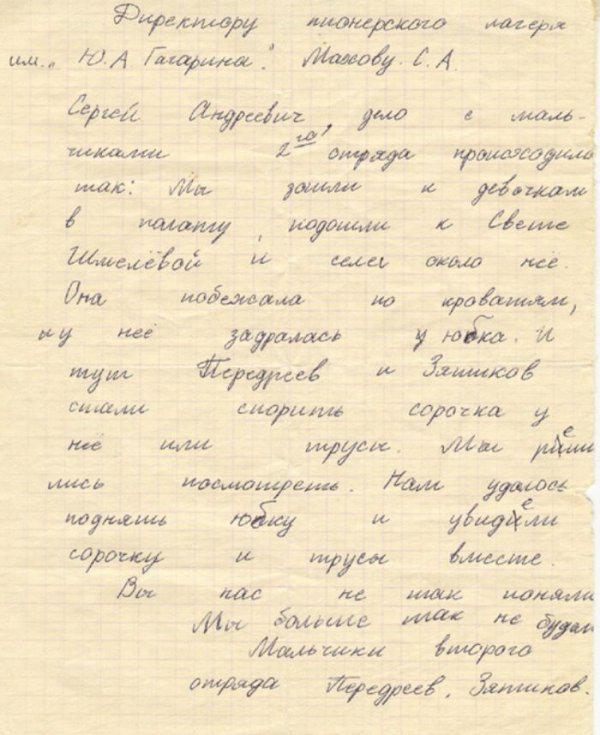 Директору пионерского лагеря
им. „Ю.А Гагарина". Махову. С.А.
Сергей Андреевич, дело с маль-
чиками 2го отряда происходило
так: Мы зашли к девочкам
в палату, подошли к Свете
Шмелёвой и сели около неё.
Она побежала по кроватям,
и у неё задралась юбка. И
тут Передреев и Зятиков
стали спорить сорочка у
неё или трусы. Мы реши
лись посмотреть. Нам удалось
поднять юбку и увидели
сорочку и трусы вместе.
Вы нас не так поняли
Мы больше так не будем
Мальчики второго
отряда Передреев, Зятиков.